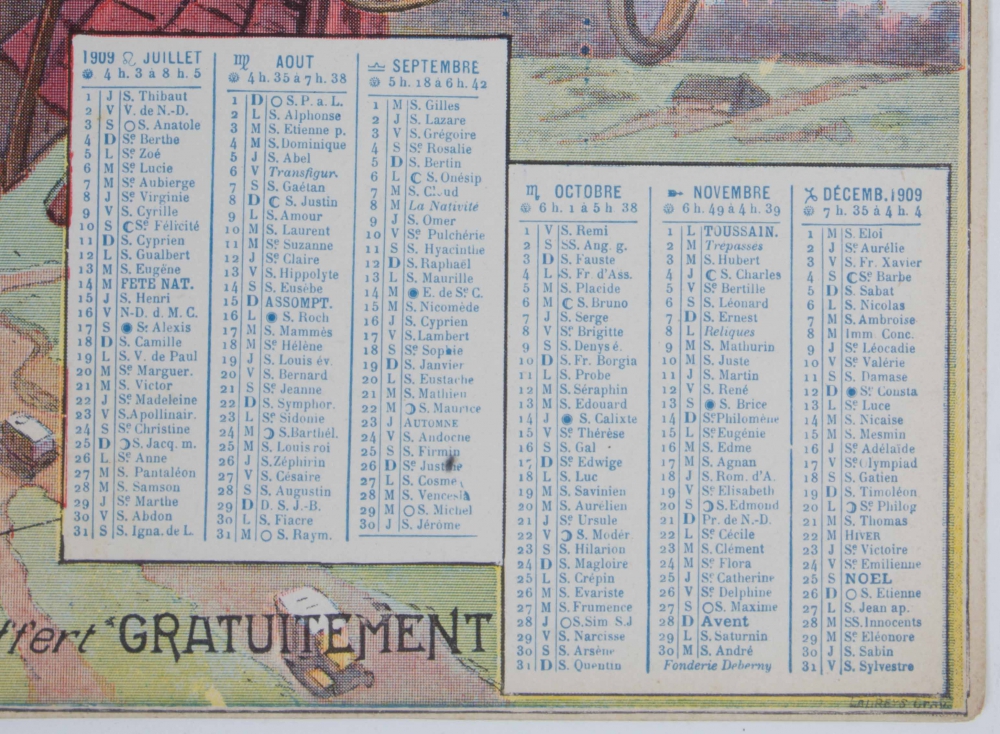 1909 ♌ JUILLET
4 h. 3 à 8 h. 5
1 J S. Thibaut
2 V V. de N.-D.
3 S S. Anatole
4 D Sᵉ Berthe
5 L Sᵉ Zoé
6 M Sᵉ Lucie
7 M Sᵉ Aubierge
8 J Sᵉ Virginie
9 V S. Cyrille
10 S Sᵉ Félicité
11 D S. Cyprien
12 L S. Gualbert
13 M S. Eugène
14 M FETE NAT.
15 J S. Henri
16 V N-D. d. M. C.
17 S Sᵗ Alexis
18 D S. Camille
19 L S. V. de Paul
20 M Sᵉ Marguer.
21 M S. Victor
22 J Sᵉ Madeleine
23 V S. Apollinair.
24 S Sᵉ Christine
25 D S. Jacq. m.
26 L Sᵉ Anne
27 M S. Pantaléon
28 M S. Samson
29 J Sᵉ Marthe
30 V S. Abdon
31 S S. Igna. de L.
♍ AOUT
4 h. 35 à 7 h. 38
1 D S. P. a. L.
2 L S. Alphonse
3 M S. Etienne p.
4 M S. Dominique
5 J S. Abel
6 V Transfigur.
7 S S. Gaétan
8 D S. Justin
9 L S. Amour
10 M S. Laurent
11 M Sᵉ Suzanne
12 J Sᵉ Claire
13 V S. Hippolyte
14 S S. Eusèbe
15 D ASSOMPT.
16 L S. Roch
17 M S. Mammès
18 M Sᵉ Hélène
19 J S. Louis év.
20 V S. Bernard
21 S Sᵉ Jeanne
22 D S. Symphor.
23 L Sᵉ Sidonie
24 M S. Barthél.
25 M S. Louis roi
26 J S. Zéphirin
27 V S. Césaire
28 S S. Augustin
29 D D. S. J.-B.
30 L S. Fiacre
31 M S. Raym.
♎ SEPTEMBRE
5 h. 18 à 6 h. 42
1 M S. Gilles
2 J S. Lazare
3 V S. Grégoire
4 S Sᵉ Rosalie
5 D S. Bertin
6 L S. Onésip
7 M
8 M La Nativité
9 J S. Omer
10 V Sᵉ Pulchérie
11 S S. Hyacinthe
12 D S. Raphaël
13 L S. Maurille
14 M E. de Sᵉ C.
15 M S. Nicomède
16 J S. Cyprien
17 V S. Lambert
18 S Sᵉ Sophie
19 D S. Janvier
20 L S. Eustache
21 M S. Mathieu
22 M S. Maurice
23 J AUTOMNE
24 V S. Andoche
25 S S. Firmin
26 D Sᵉ Justine
27 L S. Cosme
28 M S. Vencesla
29 M S. Michel
30 J S. Jérôme
♏ OCTOBRE
6 h. 1 à 5 h 38
1 V S. Remi
2 S SS. Ang. g.
3 D S. Fauste
4 L S. Fr. d'Ass.
5 M S. Placide
6 M S. Bruno
7 J S. Serge
8 V Sᵉ Brigitte
9 S S. Denys é.
10 D S. Fr. Borgia
11 L S. Probe
12 M S. Séraphin
13 M S. Edouard
14 J S. Calixte
15 V Sᵉ Thérèse
16 S S. Gal
17 D Sᵉ Edwige
18 L S. Luc
19 M S. Savinien
20 M S. Aurélien
21 J Sᵉ Ursule
22 V S. Modér.
23 S S. Hilarion
24 D S. Magloire
25 L S. Crépin
26 M S. Evariste
27 M S. Frumence
28 J S. Sim S. J
29 V S. Narcisse
30 S S. Arsène
31 D S. Quentin
♐ NOVEMBRE
6 h. 49 à 4 h. 39
1 L TOUSSAIN.
2 M Trépassés
3 M S. Hubert
4 J S. Charles
5 V Sᵉ Bertille
6 S S. Léonard
7 D S. Ernest
8 L Reliques
9 M S. Mathurin
10 M S. Juste
11 J S. Martin
12 V S. René
13 S S. Brice
14 D Sᵉ Philomène
15 L Sᵉ Eugénie
16 M S. Edme
17 M S. Agnan
18 J S. Rom. d'A.
19 V Sᵉ Elisabeth
20 S S. Edmond
21 D Pr. de N.-D.
22 L Sᵉ Cécile
23 M S. Clément
24 M Sᵉ Flora
25 J Sᵉ Catherine
26 V Sᵉ Delphine
27 S S. Maxime
28 D Avent
29 L S. Saturnin
30 M S. André
Fonderie Deberny
♑ DÉCEMB. 1909
7 h. 35 à 4 h. 4
1 M S. Eloi
2 J Sᵉ Aurélie
3 V S. Fr. Xavier
4 S Sᵉ Barbe
5 D S. Sabat
6 L S. Nicolas
7 M S. Ambroise
8 M Imm. Conc.
9 J Sᵉ Léocadie
10 V Sᵉ Valérie
11 S S. Damase
12 D Sᵉ Consta
13 L Sᵉ Luce
14 M S. Nicaise
15 M S. Mesmin
16 J Sᵉ Adélaïde
17 V Sᵉ Olympiad
18 S S. Gatien
19 D S. Timoléon
20 L S. Philog
21 M S. Thomas
22 M HIVER
23 J Sᵉ Victoire
24 V Sᵉ Emilienne
25 S NOEL
26 D S. Etienne
27 L S. Jean ap.
28 M SS. Innocents
29 M Sᵉ Eléonore
30 J S. Sabin
31 V S. Sylvestre
ffert GRATUITEMENT